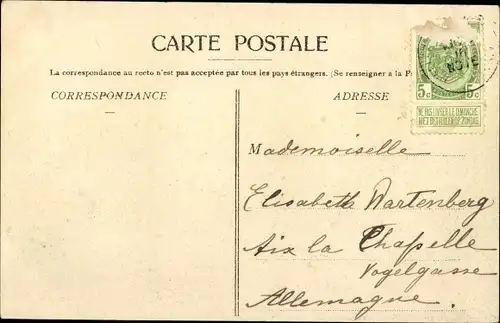 CARTE POSTALE
La correspondance au recto n'est pas acceptée par tous les pays étrangers. (Se renseigner à la
CORRESPONDANCE
ADRESSE
5c 5c
NE PAS LIVRER LE DIMANCHE
NIET BESTELLEN OP ZONDAG
Mademoiselle
Elisabeth Wartenberg
Aix la Chapelle
Vogelgasse
Allemagne.